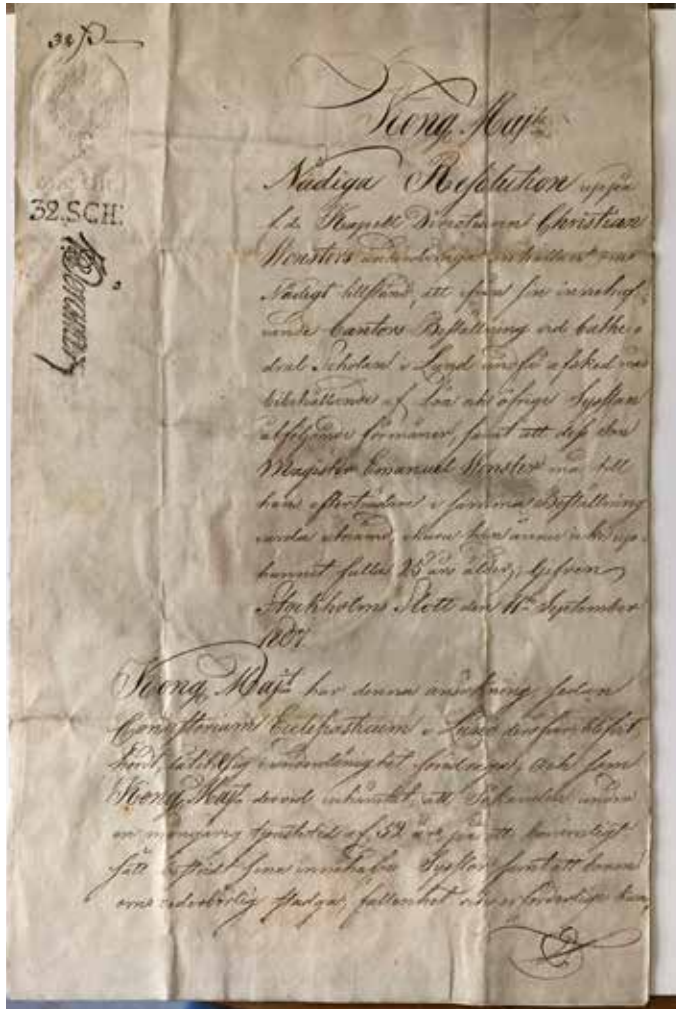 32 ß
32.SCH:
Kong. Maj:ts
Nådiga Resolution uppå
f. d. Kapell Directeuren Christian
Wensters underdåniga
Nådigt tillstånd, att ifrån sin innehaf-
vande Cantors Beställning vid Cathe-
dral Scholan i Lund undfå afsked med
bibehållande af Lön och öfrige Sysslan
åtföljande förmåner, samt att dess Son
Magister Emanuel Wenster må till
hans efterträdare i samma Beställning
varda utnämd, ehuru han ännu icke upp-
hunnit fulla 25 års ålder; Gifven
Stockholms Slott den 11te September
1807
Kong. Maj:t har denna ansökning, sedan
Consistorium Ecclesiasticum i Lund deröfver blifvit
hördt, låtit sig i underdånighet föredragas; Och som
Kong. Maj:t dervid inhämtat, att Sökanden under
en mångårig tjenstetid af 52 år på ett
sätt bestridt sina innehafda Sysslor samt att dennes
son ådagalagt stadga, fallenhet och erforderlige kun-